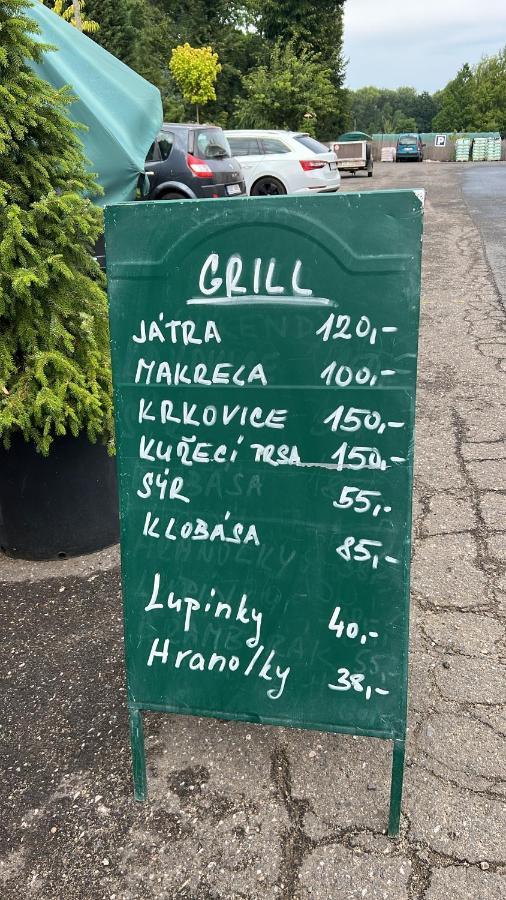 P
GRILL
JÁTRA 120,-
MAKRELA 100,-
KRKOVICE 150,-
KUŘECÍ PRSA 150,-
SÝR 55,-
KLOBÁSA 85,-
Lupínky 40,-
Hranolky 38,-